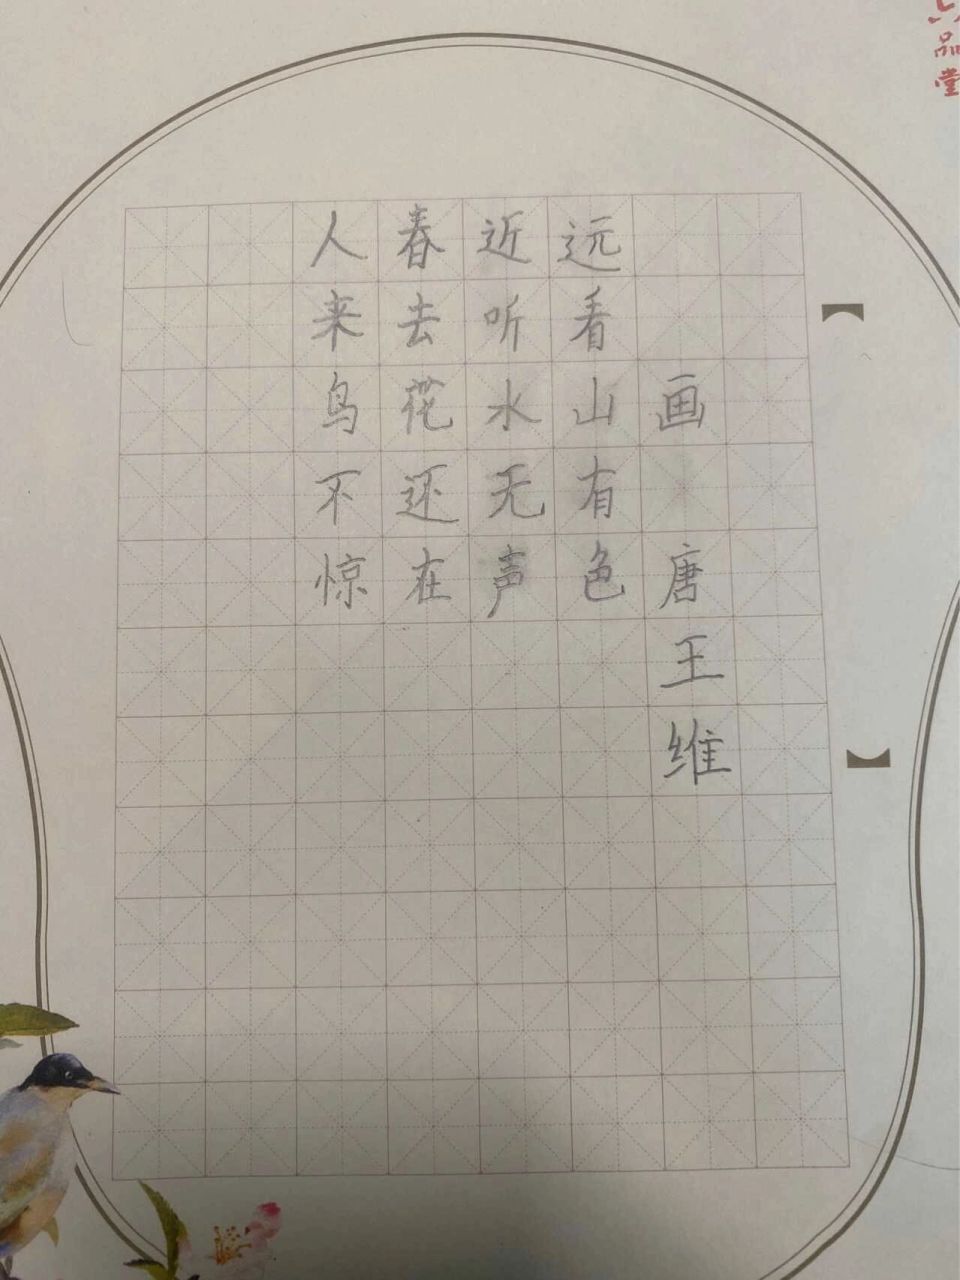 六品堂
画 唐王维
远看山有色
近听水无声
春去花还在
人来鸟不惊